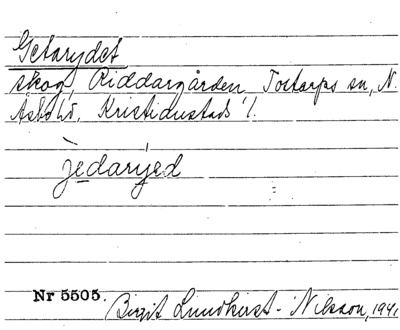 Getarydet
skog, Riddargården Tostarps sn, N.
Åsbo hd, Kristianstads l.
jedaryed
Nr 5505.
Birgit Lundkvist - Nilsson, 1941